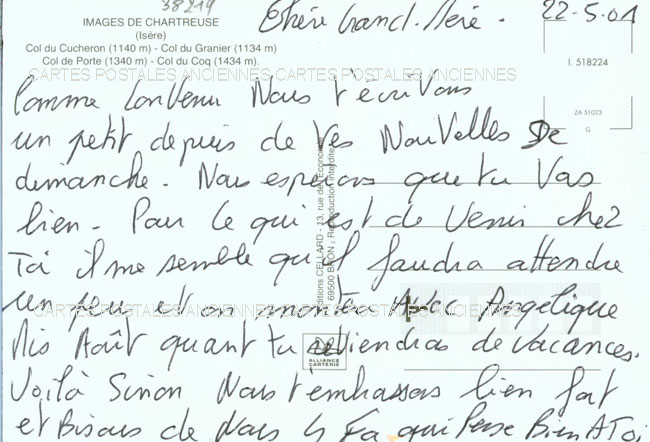 38219
IMAGES DE CHARTREUSE
(Isère)
Col du Cucheron (1140 m) - Col du Granier (1134 m)
Col de Porte (1340 m) - Col du Coq (1434 m).
Chère Grand-Mère.
22-5-01
I. 518224
ZA 51023
G
CARTES POSTALES ANCIENNES CARTES POSTALES ANCIENNES
Comme Convenu Nous t'écrivons
un petit depuis de tes Nouvelles De
dimanche. Nous esperons que tu Vas
bien. Pour ce qui est de Venir chez
Toi il me semble qu'il faudra attendre
un peu et on montera Avec Angélique
Mis Août quant tu reviendras de vacances.
Voilà Sinon Nous t'embrassons bien fort
et Bisous de Nous 4 qui Pense Bien A Toi
Editions CELLARD - 13, rue de l'Economie
69500 BRON - Reproduction interdite
CARTES POSTALES ANCIENNES CARTES POSTALES ANCIENNES
ALLIANCE
CARTERIE